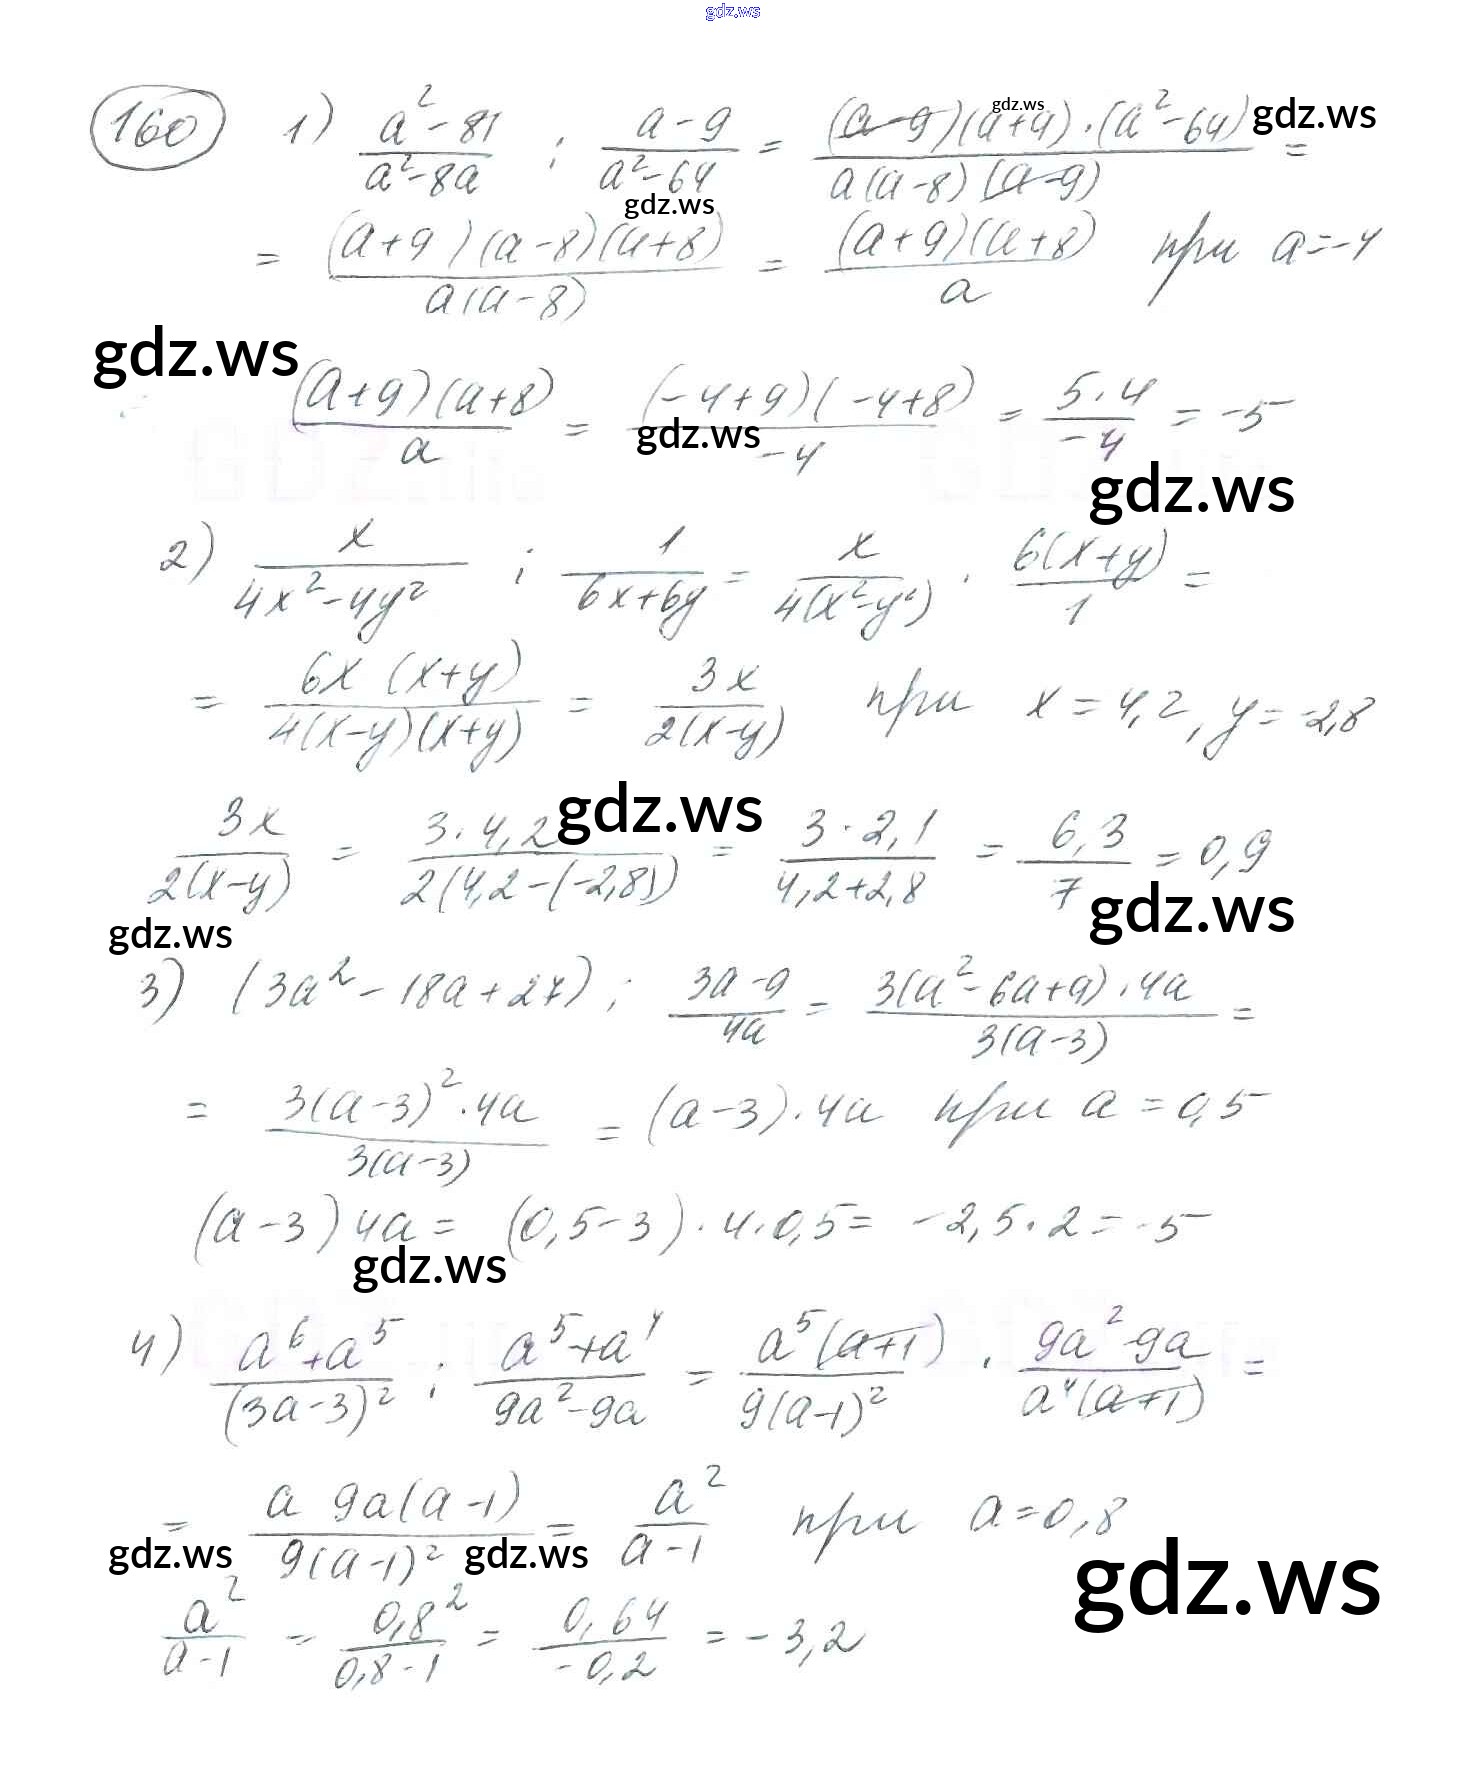 gdz.ws
160 1) (a²-81)/(a²-8a) : (a-9)/(a²-64) = ((a-9)(a+9)·(a²-64))/(a(a-8)(a-9)) =
gdz.ws gdz.ws gdz.ws
= ((a+9)(a-8)(a+8))/(a(a-8)) = ((a+9)(a+8))/a при a=-4
gdz.ws
((a+9)(a+8))/a = ((-4+9)(-4+8))/(-4) = (5·4)/(-4) = -5
gdz.ws gdz.ws
2) x/(4x²-4y²) : 1/(6x+6y) = x/(4(x²-y²)) · (6(x+y))/1 =
= (6x(x+y))/(4(x-y)(x+y)) = 3x/(2(x-y)) при x=4,2, y=-2,8
gdz.ws
3x/(2(x-y)) = (3·4,2)/(2(4,2-(-2,8))) = (3·2,1)/(4,2+2,8) = 6,3/7 = 0,9
gdz.ws gdz.ws
3) (3a²-18a+27) : (3a-9)/(4a) = (3(a²-6a+9)·4a)/(3(a-3)) =
= (3(a-3)²·4a)/(3(a-3)) = (a-3)·4a при a=0,5
(a-3)4a = (0,5-3)·4·0,5 = -2,5·2 = -5
gdz.ws
4) (a⁶+a⁵)/(3a-3)² : (a⁵+a⁴)/(9a²-9a) = (a⁵(a+1))/(9(a-1)²) · (9a²-9a)/(a⁴(a+1)) =
= (a 9a(a-1))/(9(a-1)²) = a²/(a-1) при a=0,8
gdz.ws gdz.ws gdz.ws
a²/(a-1) = 0,8²/(0,8-1) = 0,64/(-0,2) = -3,2